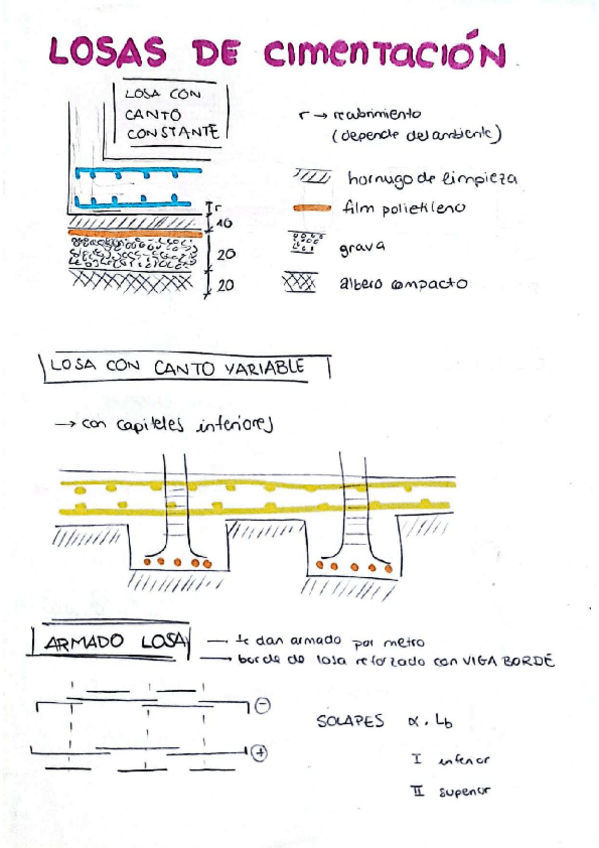 LOSAS DE CIMENTACIÓN
LOSA CON
CANTO
CONSTANTE
r → recubrimiento
(depende del ambiente)
hormigo de limpieza
film polietileno
grava
albero compacto
r
10
20
20
LOSA CON CANTO VARIABLE
→ con capiteles inferiores
ARMADO LOSA
te dan armado por metro
→ borde de losa reforzado con VIGA BORDE
-
+
SOLAPES α . Lb
I inferior
II superior